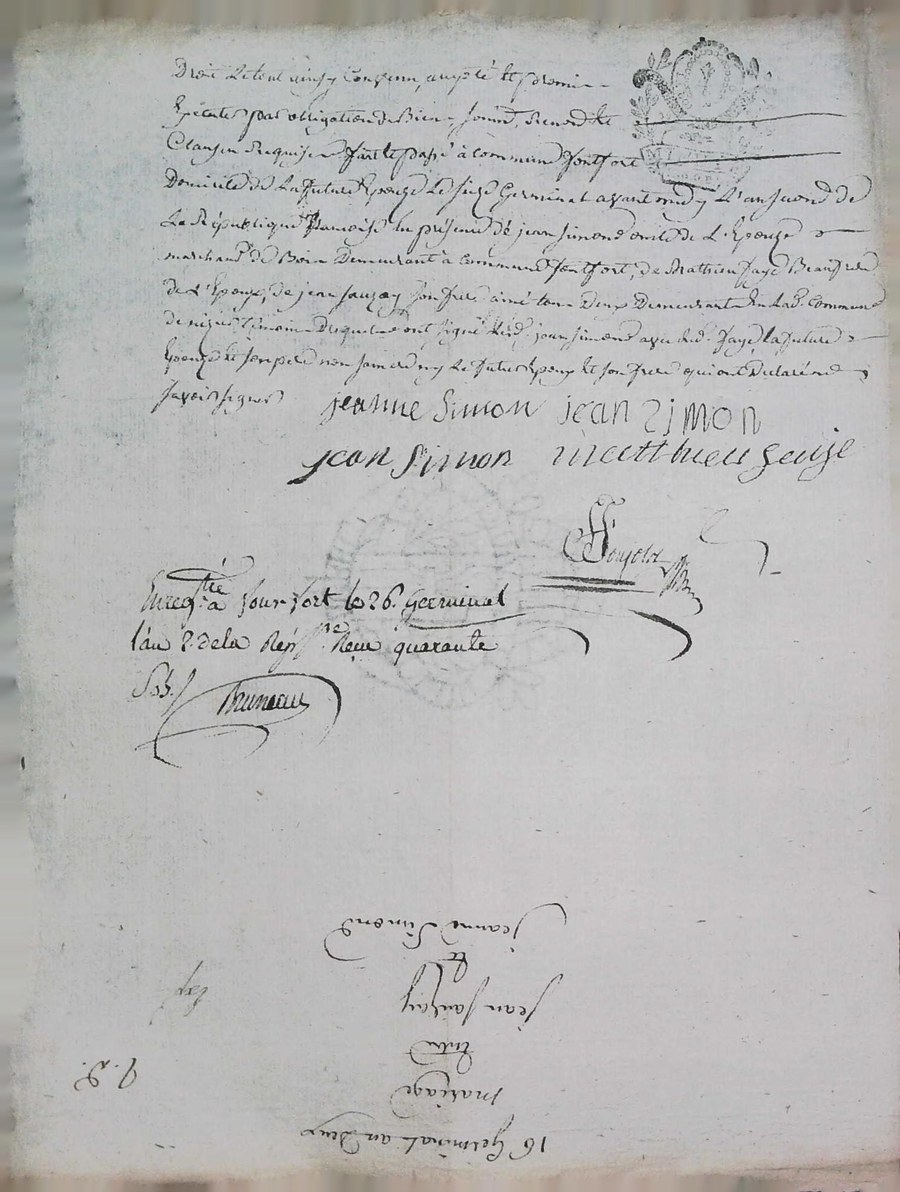 Droit Le tout ainsy Convenu, accepté et promis
Executer par obligation de Biens, soumd. Renond. et
Clauses Requises fait et passé à Commune fontfort
Domicile de La future Epouze Le seize Germinal avant midy L'an second de
La République francoise En présence de jean Simond oncle de L'Epouze
marchand de Bois Demeurant à Commune fontfort, de Mathieu faye Beaufrere
de L'Epoux, de jean sauzay son frere ainé tous deux Demeurant En Lad. Commune
témoins Lesquels ont signé Led. jean simond avec Led. faye, la future
Epouze et son pere non sommés ny Le futur Epoux et son frere qui ont declaré ne
savoir signer
jeanne Simon jean Simon
jean Simon matthieu faije
Enregtré à fontfort le 26. Germinal
l'an 2. de la Rép. Reçu quarante
Sols
Bruneau
16 Germinal an deux
mariage
Entre
jean sauzay
et
jeanne Simond